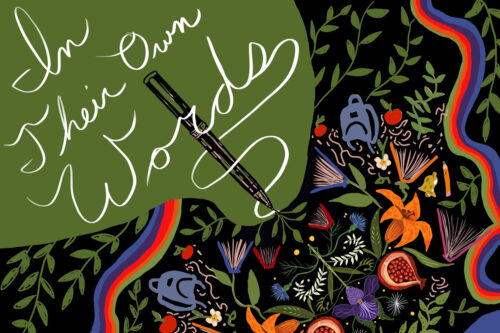 In
Their Own
Words